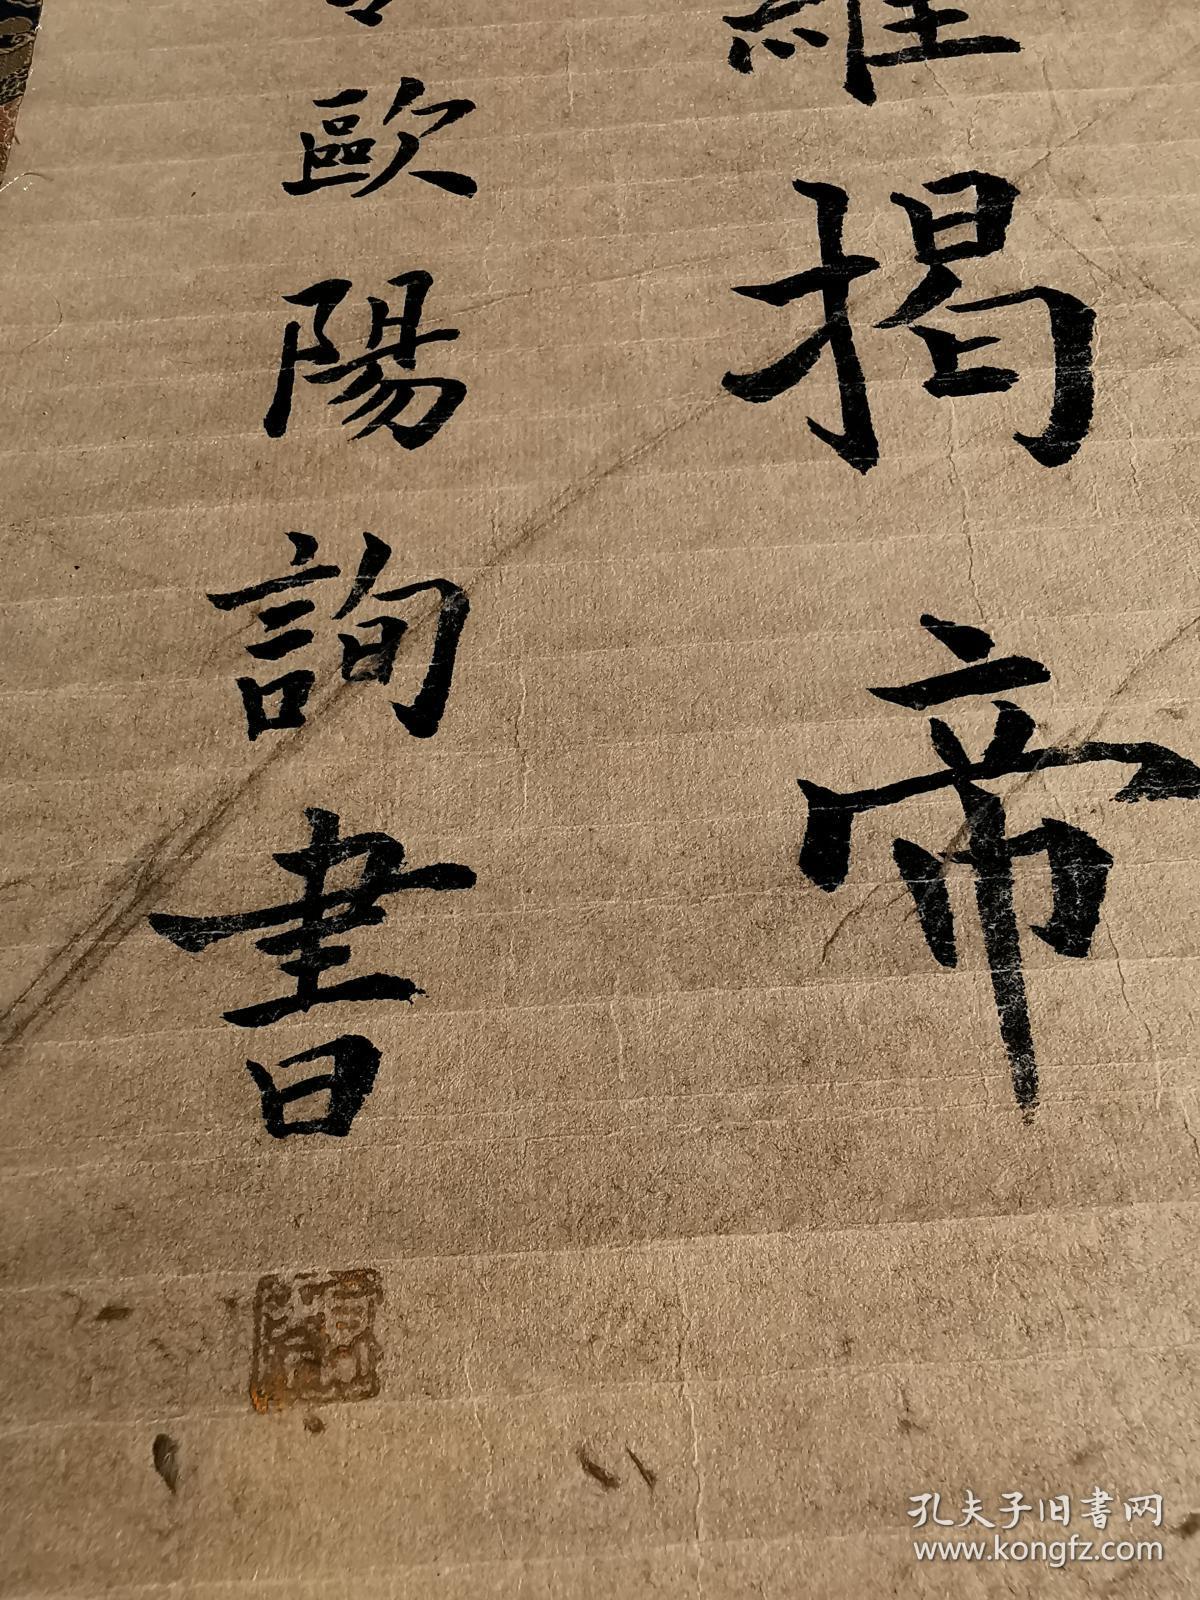 羅揭帝
歐陽詢書
孔夫子旧書网
www.kongfz.com